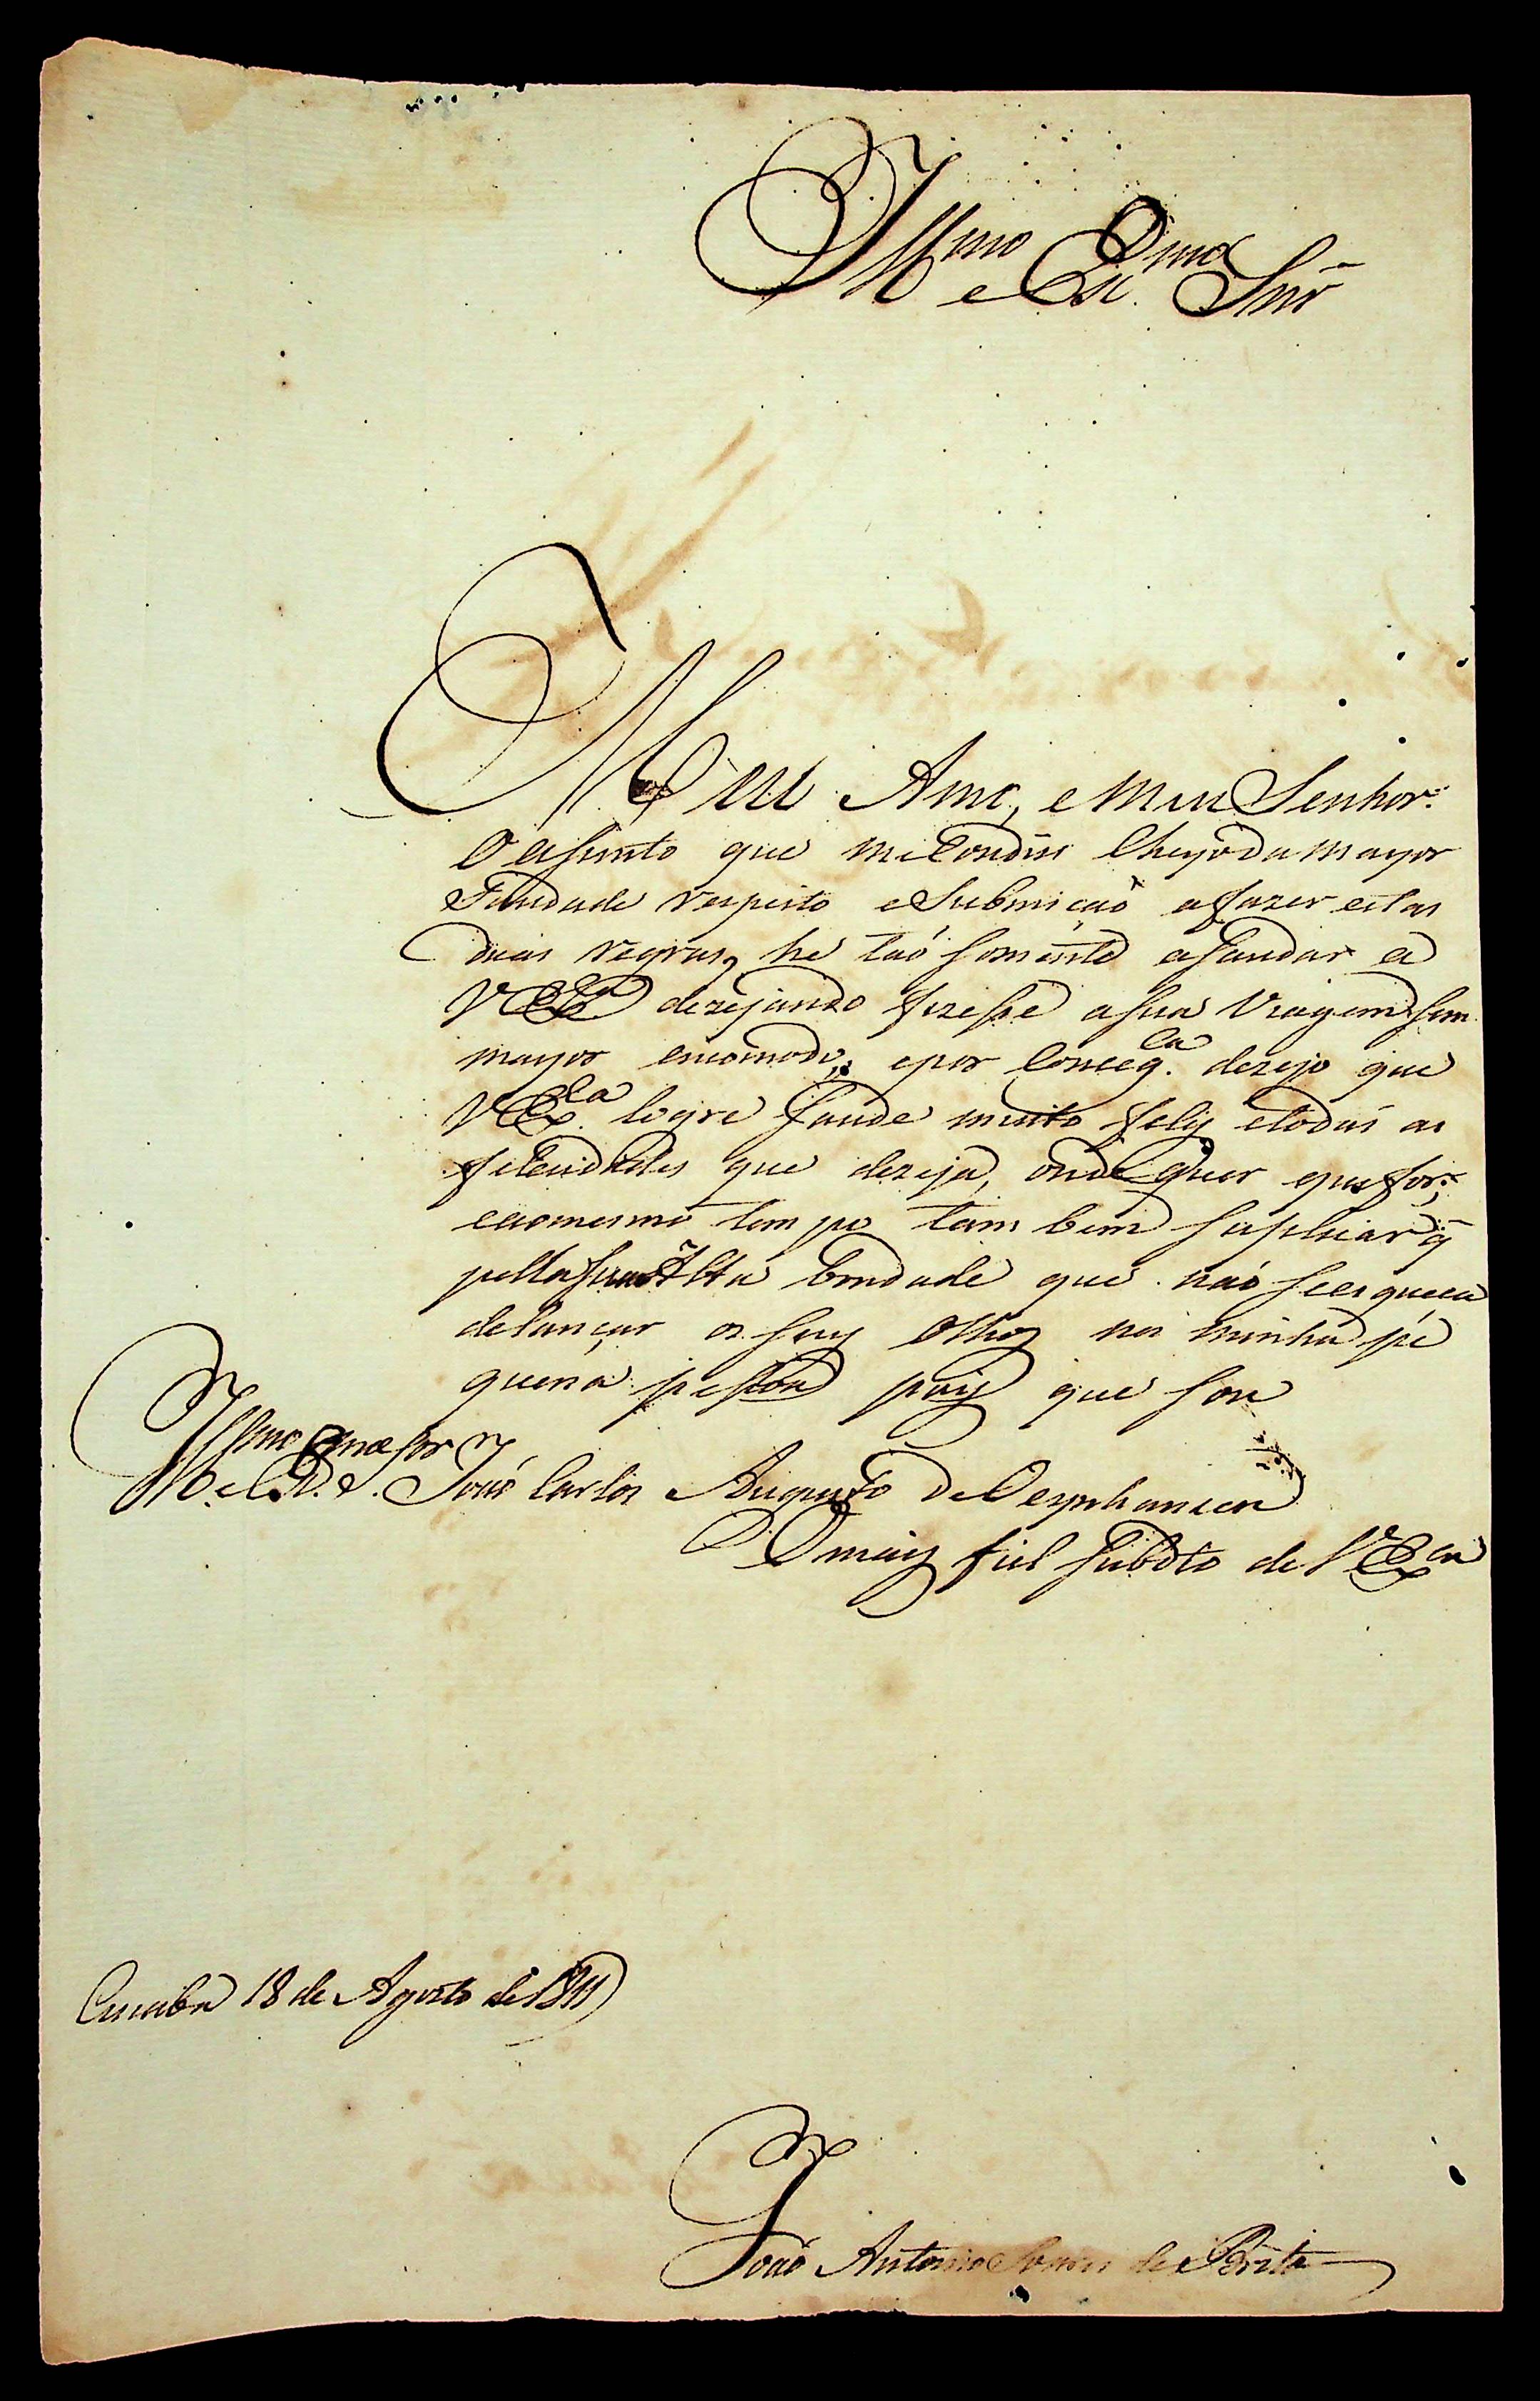 Illmo e Exmo Snr
Meu Amo, e Meu Senhor
O asumto que me Condus Cheyo da mayor
Saudade respeito e Submicaõ afazer estas
duas regras, he taõ somente asaudar a
VExca dezejando fizesse asua Viagem sem
mayor encomodo, epor Conceq.ca dezejo que
VEx.ca logre saude muito felis etodas as
felicidades que dezeja, onde quer que for,
eaomesmo tempo tambem suplicar q̃
pella sua Alta bondade que naõ seesqueca
delançar os seus Olhos na minha pe
quena pessoa pois que sou
Illmo e Exmo Snr Joaõ Carlos Augusto De Oeynhausen
O mais fiel Subdto de VExca
Cuiabá 18 de Agosto de 1811
Joaõ Antonio de Brito